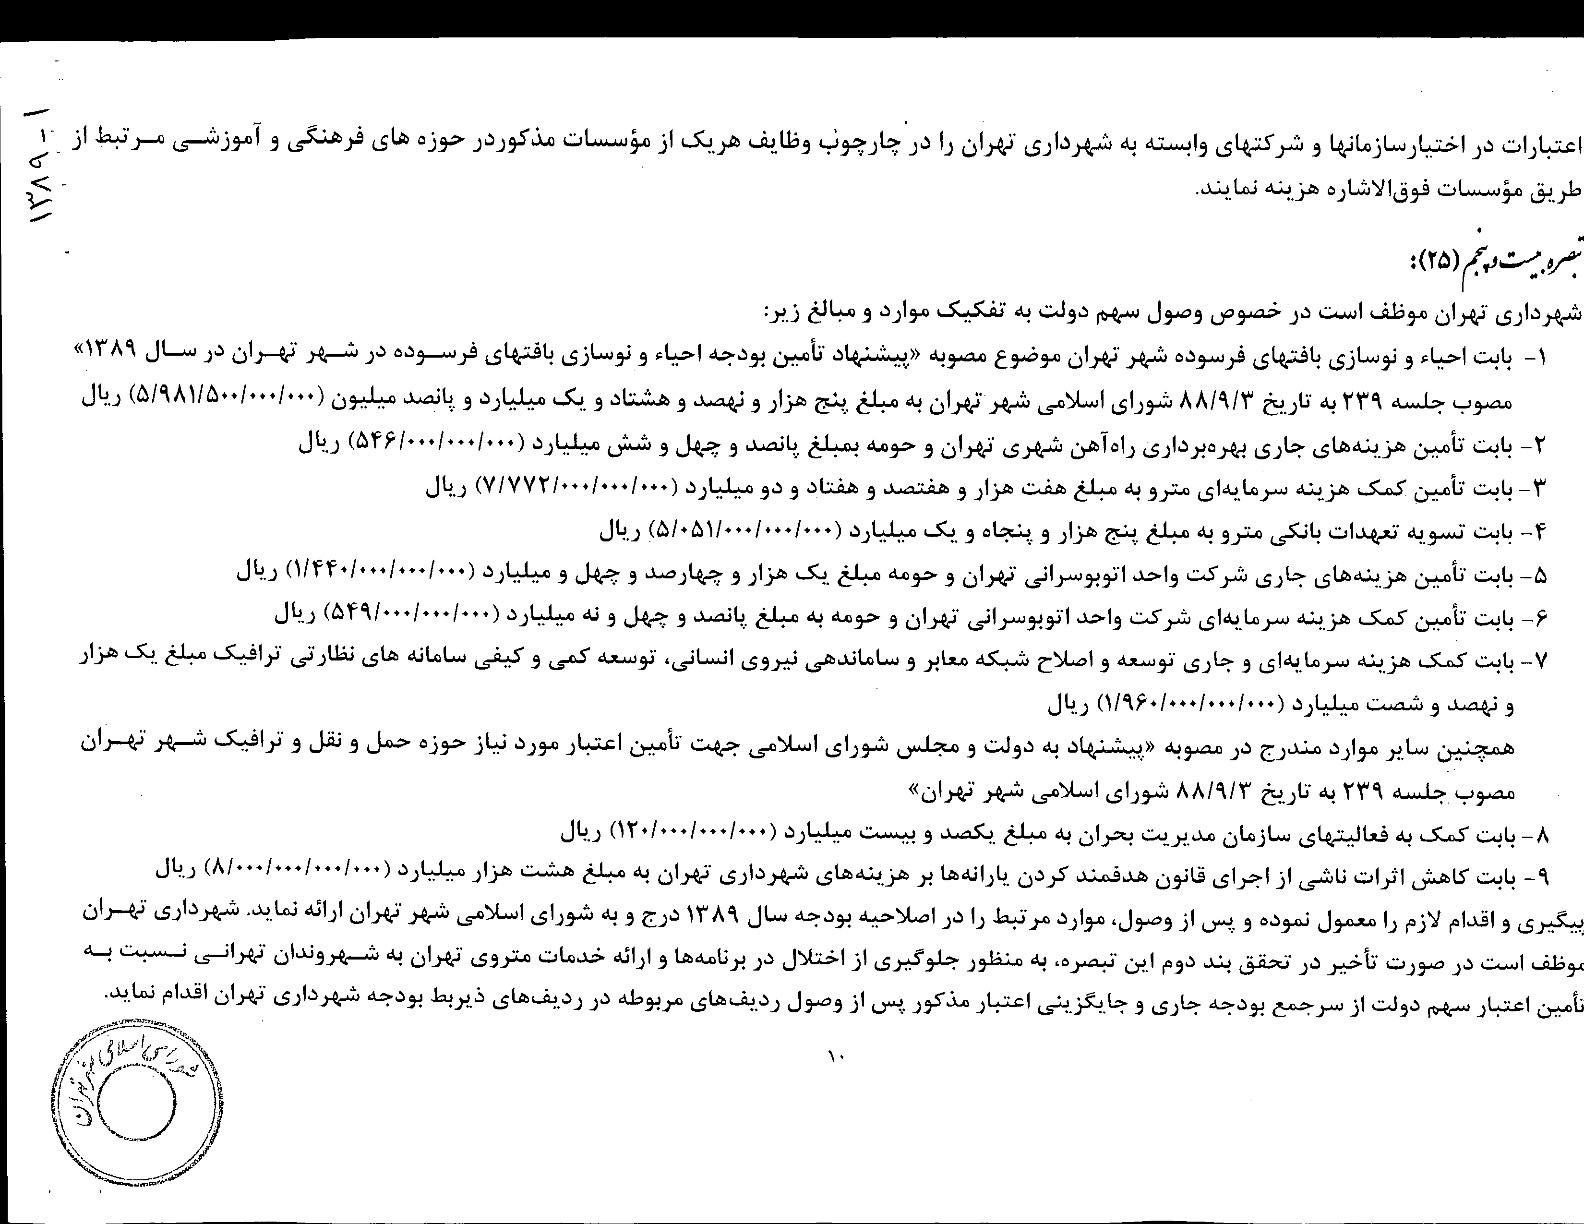 اعتبارات در اختیارسازمانها و شرکتهای وابسته به شهرداری تهران را در چارچوب وظایف هریک از مؤسسات مذکوردر حوزه های فرهنگی و آموزشی مرتبط از
طریق مؤسسات فوق‌الاشاره هزینه نمایند.
تبصره بیست و پنجم (۲۵):
شهرداری تهران موظف است در خصوص وصول سهم دولت به تفکیک موارد و مبالغ زیر:
۱- بابت احیاء و نوسازی بافتهای فرسوده شهر تهران موضوع مصوبه «پیشنهاد تأمین بودجه احیاء و نوسازی بافتهای فرسوده در شهر تهران در سال ۱۳۸۹»
مصوب جلسه ۲۳۹ به تاریخ ۸۸/۹/۳ شورای اسلامی شهر تهران به مبلغ پنج هزار و نهصد و هشتاد و یک میلیارد و پانصد میلیون (۵/۹۸۱/۵۰۰/۰۰۰/۰۰۰) ریال
۲- بابت تأمین هزینه‌های جاری بهره‌برداری راه‌آهن شهری تهران و حومه بمبلغ پانصد و چهل و شش میلیارد (۵۴۶/۰۰۰/۰۰۰/۰۰۰) ریال
۳- بابت تأمین کمک هزینه سرمایه‌ای مترو به مبلغ هفت هزار و هفتصد و هفتاد و دو میلیارد (۷/۷۷۲/۰۰۰/۰۰۰/۰۰۰) ریال
۴- بابت تسویه تعهدات بانکی مترو به مبلغ پنج هزار و پنجاه و یک میلیارد (۵/۰۵۱/۰۰۰/۰۰۰/۰۰۰) ریال
۵- بابت تأمین هزینه‌های جاری شرکت واحد اتوبوسرانی تهران و حومه مبلغ یک هزار و چهارصد و چهل و میلیارد (۱/۴۴۰/۰۰۰/۰۰۰/۰۰۰) ریال
۶- بابت تأمین کمک هزینه سرمایه‌ای شرکت واحد اتوبوسرانی تهران و حومه به مبلغ پانصد و چهل و نه میلیارد (۵۴۹/۰۰۰/۰۰۰/۰۰۰) ریال
۷- بابت کمک هزینه سرمایه‌ای و جاری توسعه و اصلاح شبکه معابر و ساماندهی نیروی انسانی، توسعه کمی و کیفی سامانه های نظارتی ترافیک مبلغ یک هزار
و نهصد و شصت میلیارد (۱/۹۶۰/۰۰۰/۰۰۰/۰۰۰) ریال
همچنین سایر موارد مندرج در مصوبه «پیشنهاد به دولت و مجلس شورای اسلامی جهت تأمین اعتبار مورد نیاز حوزه حمل و نقل و ترافیک شهر تهران
مصوب جلسه ۲۳۹ به تاریخ ۸۸/۹/۳ شورای اسلامی شهر تهران»
۸- بابت کمک به فعالیتهای سازمان مدیریت بحران به مبلغ یکصد و بیست میلیارد (۱۲۰/۰۰۰/۰۰۰/۰۰۰) ریال
۹- بابت کاهش اثرات ناشی از اجرای قانون هدفمند کردن یارانه‌ها بر هزینه‌های شهرداری تهران به مبلغ هشت هزار میلیارد (۸/۰۰۰/۰۰۰/۰۰۰/۰۰۰) ریال
پیگیری و اقدام لازم را معمول نموده و پس از وصول، موارد مرتبط را در اصلاحیه بودجه سال ۱۳۸۹ درج و به شورای اسلامی شهر تهران ارائه نماید. شهرداری تهران
موظف است در صورت تأخیر در تحقق بند دوم این تبصره، به منظور جلوگیری از اختلال در برنامه‌ها و ارائه خدمات متروی تهران به شهروندان تهرانی نسبت به
تأمین اعتبار سهم دولت از سرجمع بودجه جاری و جایگزینی اعتبار مذکور پس از وصول ردیف‌های مربوطه در ردیف‌های ذیربط بودجه شهرداری تهران اقدام نماید.
۱۰
شورای اسلامی شهر تهران